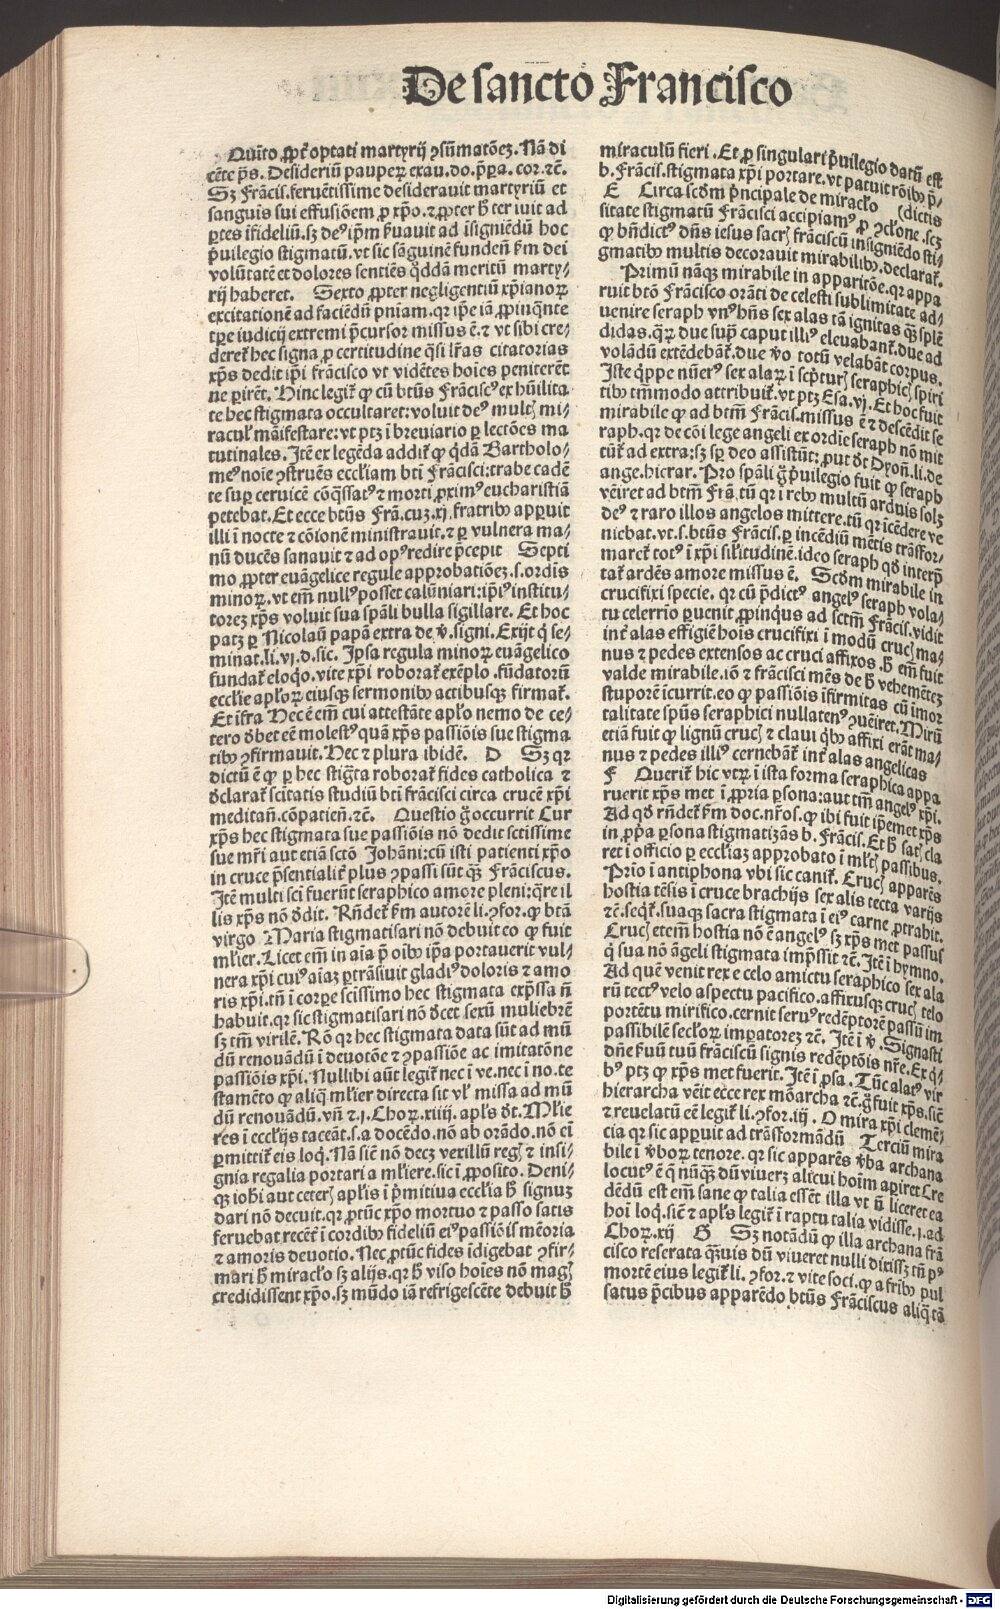 De sancto Francisco
Quīto ꝓpt̄ optati martyrij ꝯsūmatōeꝫ. Nā di
cēte pš. Desideriū pauperꝝ exau. do. p̄para. cor. ꝛc̄.
Sꝫ Frācis. feruētissime desiderauit martyriū et
sanguis sui effusiōem ꝓ xp̄o. ⁊ ꝓpter ƀ ter iuit ad
ꝑtes īfideliū. sꝫ deꝰ ip̄m ẜuauit ad īsigniēdū hoc
p̄uilegio stigmatū. vt sic sāguinē fundēti ẜm dei
volūtatē et dolores sentiēs q̊ddā meritū marty⸗
rij haberet. Sexto ꝓpter negligentiū xp̄ianoꝝ
excitationē ad faciēdū pniam. qꝛ ip̄e iā ꝓpinq̄nte
tꝑe iudicij extremi p̄cursor missus ē. ⁊ vt sibi cre⸗
deret̄ hec signa ꝓ certitudine q̄si lr̄as citatorias
xp̄s dedit ip̄i frācisco vt vidētes hoīes peniterēt
ne ꝑirēt. Hinc legit̄ ꝙ cū btūs Frāciscꝰ ex hūilita
te hec stigmata occultaret: voluit deꝰ multꝭ mi⸗
racul̄ māifestare: vt ptꝫ ī breuiario ꝑ lectōes ma
tutinales. Itē ex legēda addit̄ ꝙ q̄dā Bartholo⸗
meꝰ noīe ꝯstruēs eccl̄iam bti Frācisci: trabe cadē
te suꝑ ceruicē cōq̄ssatꝰ ⁊ morti ꝓximꝰ eucharistiā
petebat. Et ecce btūs Frā. cuꝫ. xj. fratribꝰ apꝑuit
illi ī nocte ⁊ cōionē ministrauit. ⁊ ꝑ vulnera ma⸗
nū ducēs sanauit ⁊ ad opꝰ redire p̄cepit Septi
mo ꝓpter euāgelice regule approbatiōeꝫ. s. ordīs
minoꝝ. vt em̄ nullꝰ posset calūniari: ip̄iꝰ institu⸗
toreꝫ xp̄s voluit sua sp̄ali bulla sigillare. Et hoc
patꝫ ꝑ Nicolaū papā extra de v̄. signi. Exijt q̄ se⸗
minat. li. vj. d. sic. Ip̄sa regula minoꝝ euāgelico
fundat̄ eloq̊o. vite xp̄i roborat̄ exēplo. fūdatorū
eccl̄ie apl̄oꝝ eiusqꝫ sermonibꝰ actibusqꝫ firmat̄.
Et īfra Hec ē em̄ cui attestāte apl̄o nemo de ce⸗
tero dꝫbet eē molestꝰ quā xp̄s passiōis sue stigma
tibꝰ ꝯfirmauit. Hec ⁊ plura ibidē. D Sꝫ qꝛ
dictū ē ꝙ ꝑ hec stig̅ta roborat̄ fides catholica ⁊
dꝫclarat̄ scītatis studiū bti frācisci circa crucē xp̄i
meditan̄. cōpatien̄. ꝛc̄. Questio g̊ occurrit Cur
xp̄s hec stigmata sue passiōis nō dedit sctīssime
sue mr̄i aut etiā sctō Johāni: cū isti patienti xp̄o
in cruce p̄sentialit̄ plus ꝯpassi sūt qꝫ Frāciscus.
Itē multi sci fuerūt seraphico amore pleni: q̄re il
lis xp̄s nō dꝫdit. Rn̄det̄ ẜm autorē li. ꝯfor. ꝙ btā
virgo Maria stigmatisari nō debuit eo ꝙ fuit
ml̄ier. Licet em̄ in aīa p̄ oībꝰ ip̄a portauerit vul⸗
nera xp̄i cuiꝰ aīaꝫ ꝑtrāsiuit gladiꝰ doloris ⁊ amo
ris xp̄i. tn̄ ī corꝑe scīssimo hec stigmata exp̄ssa n̄
habuit. qꝛ sic stigmatisari nō dꝫcet sexū muliebrē
sꝫ tm̄ virilē. Rō qꝛ hec stigmata data sūt ad mū
dū renouādū ī deuotōe ⁊ ꝯpassiōe ac imitatōne
passiōis xp̄i. Nullibi aūt legit̄ nec ī ve. nec ī no. te
stamēto ꝙ aliq̄ ml̄ier directa sit vl̄ missa ad mū
dū renouādū. vn̄ ⁊ .1. Choꝝ. xiiij. apl̄s dꝫt. Ml̄ie
res ī eccl̄ijs taceāt. s. a docēdo. nō ab orādo. nō em̄
ꝑmittit̄ eis loq̄. Nā siĉ nō decꝫ vexillū regꝭ ⁊ insi⸗
gnia regalia portari a ml̄iere. sic ī ꝓposito. Deni⸗
qꝫ iohī aut ceterꝭ apl̄is ī p̄mitiua eccl̄ia ƀ signuꝫ
dari nō decuit. qꝛ ꝓtūc xp̄o mortuo ⁊ passo satis
feruebat recēt̄ ī cordibꝰ fideliū eiꝰ passiōis mēoria
⁊ amoris deuotio. Nec ꝓtūc fides īdigebat ꝯfir⸗
mari ƀ miracl̄o sꝫ alijs. qꝛ ƀ viso hoīes nō magꝭ
credidissent xp̄o. sꝫ mūdo iā refrigescēte debuit ƀ
miraculū fieri. Et ꝓ singulari p̄uilegio datū est
b. Frācis. stigmata xp̄i portare. vt patuit rōibꝰ p̄⸗
E Circa scdm p̄ncipale de miracl̄o (dictis
sitate stigmatū Frācisci accipiamꝰ ꝓ ꝯcl̄one. scꝫ
ꝙ bn̄dictꝰ dn̄s iesus sacrꝭ frāciscū insigniēdo sti⸗
gmatibꝰ multis decorauit mirabilibꝰ. declarat̄.
Primū nāqꝫ mirabile in apparitōe. qꝛ appa
ruit btō Frācisco orāti de celesti sublimitate ad⸗
uenire seraph vnꝰ hn̄s sex alas tā ignitas qꝫ splē
didas. q̄ꝝ due suꝑ caput illiꝰ eleuabant̄. due ad
volādū extēdebāt̄. due v̊o totū velabāt corpus.
Iste q̄ppe nūerꝰ sex alaꝝ ī scp̄turꝭ seraphicꝭ spiri
tibꝰ tm̄modo attribuit̄. vt ptꝫ Esa. vj. Et hoc fuit
mirabile ꝙ ad btm̄ Frācis. missus ē ⁊ descēdit se
raph. qꝛ de cōi lege angeli ex ordīe seraph nō mit
tūt̄ ad extra: sꝫ suꝑ deo assistūt: ꝓut dꝫt Dyon̄. li. de
ange. hierar. Pro sp̄ali g̊ p̄uilegio fuit ꝙ seraph
vēiret ad btm̄ Frā. tū qꝛ ī rebꝰ multū arduis solꝫ
deꝰ ⁊ raro illos angelos mittere. tū qꝛ īcēdere ve
niebat. vt. s. btūs Frācis. ꝑ incēdiū mētis trāsfor⸗
maret̄ totꝰ ī xp̄i sil̄itudinē. ideo seraph qd̄ interp̄
tat̄ ardēs amore missus ē. Scdm mirabile in
crucifixi specie. qꝛ cū p̄dictꝰ angelꝰ seraph vola⸗
tu celerrīo ꝑuenit ꝓpinqus ad sctm̄ Frācis. vidit
int̄ alas effigiē hoīs crucifixi ī modū crucꝭ ma⸗
nus ⁊ pedes extensos ac cruci affixos. ƀ em̄ fuit
valde mirabile. iō ⁊ frācisci mēs de ƀ vehemēteꝫ
stuporē īcurrit. eo ꝙ passiōis īfirmitas cū īmor
talitate spūs seraphici nullatenꝰ ꝯuēiret. Mirū
etiā fuit ꝙ lignū crucꝭ ⁊ claui q̄bꝰ affixi erāt ma⸗
nus ⁊ pedes illiꝰ cernebāt̄ int̄ alas angelicas
F Querit̄ hic vtꝝ ī ista forma seraphica appa
ruerit xp̄s met ī ꝓpria ꝑsona: aut tm̄ angelꝰ xp̄i.
Ad qd̄ rn̄det̄ ẜm doc. nr̄os. ꝙ ibi fuit ip̄emet xp̄s
in ꝓp̄a ꝑsona stigmatizās b. Frācis. Et ƀ satꝭ cla
ret ī officio ꝑ eccl̄iaꝫ approbato ī ml̄tꝭ passibus.
Prīo ī antiphona vbi sic canit̄. Crucꝭ apparēs
hostia tēsis ī cruce brachijs sex alis tecta varijs
ꝛc̄. seq̄t̄. suaqꝫ sacra stigmata ī eiꝰ carne ꝓtrahit.
Crucꝭ etem̄ hostia nō ē angelꝰ sꝫ xp̄s met passus
q̄ sua nō āgeli stigmata imp̄ssit ꝛc̄. Itē ī hymno.
Ad quē venit rex e celo amictu seraphico sex ala
rū tectꝰ velo aspectu pacifico. affixusqꝫ crucꝭ telo
portētu mirifico. cernit seruꝰ redēptorē passū im
passibilē secl̄oꝝ imꝑatoreꝫ ꝛc̄. Itē ī v̄. Signasti
dn̄e ẜuū tuū frāciscū signis redēptōis nr̄e. Ex q̄⸗
bꝰ ptꝫ ꝙ xp̄s met fuerit. Itē ī ꝓsa. Tūc alatꝰ vir
hierarcha vēit ecce rex mōarcha ꝛc̄. g̊ fuit xp̄s. siĉ
⁊ reuelatū eē legit̄ li. ꝯfor. iij. O mira xp̄i clemē⸗
cia qꝛ sic apꝑuit ad trāsformādū Terciū mira
bile ī v̄boꝝ tenore. qꝛ sic apparēs v̄ba archana
locutꝰ ē q̄ nūqꝫ dū viuerꝫ alicui hoīm aꝑiret Cre
dēdū est em̄ sane ꝙ talia essēt illa vt n̄ liceret ea
hoi loq̄. siĉ ⁊ apl̄s legit̄ ī raptu talia vidisse. 1. ad
Choꝝ. xij G Sꝫ notādū ꝙ illa archana frā
cisco reserata qꝫuis dū viueret nulli dixisset tn̄ pꝰ
mortē eius legit̄ li. ꝯfor. ⁊ vite soci. ꝙ a fribꝰ pul
satus p̄cibus apparēdo btūs Frāciscus aliq̄ tā
Digitalisierung gefördert durch die Deutsche Forschungsgemeinschaft - DFG